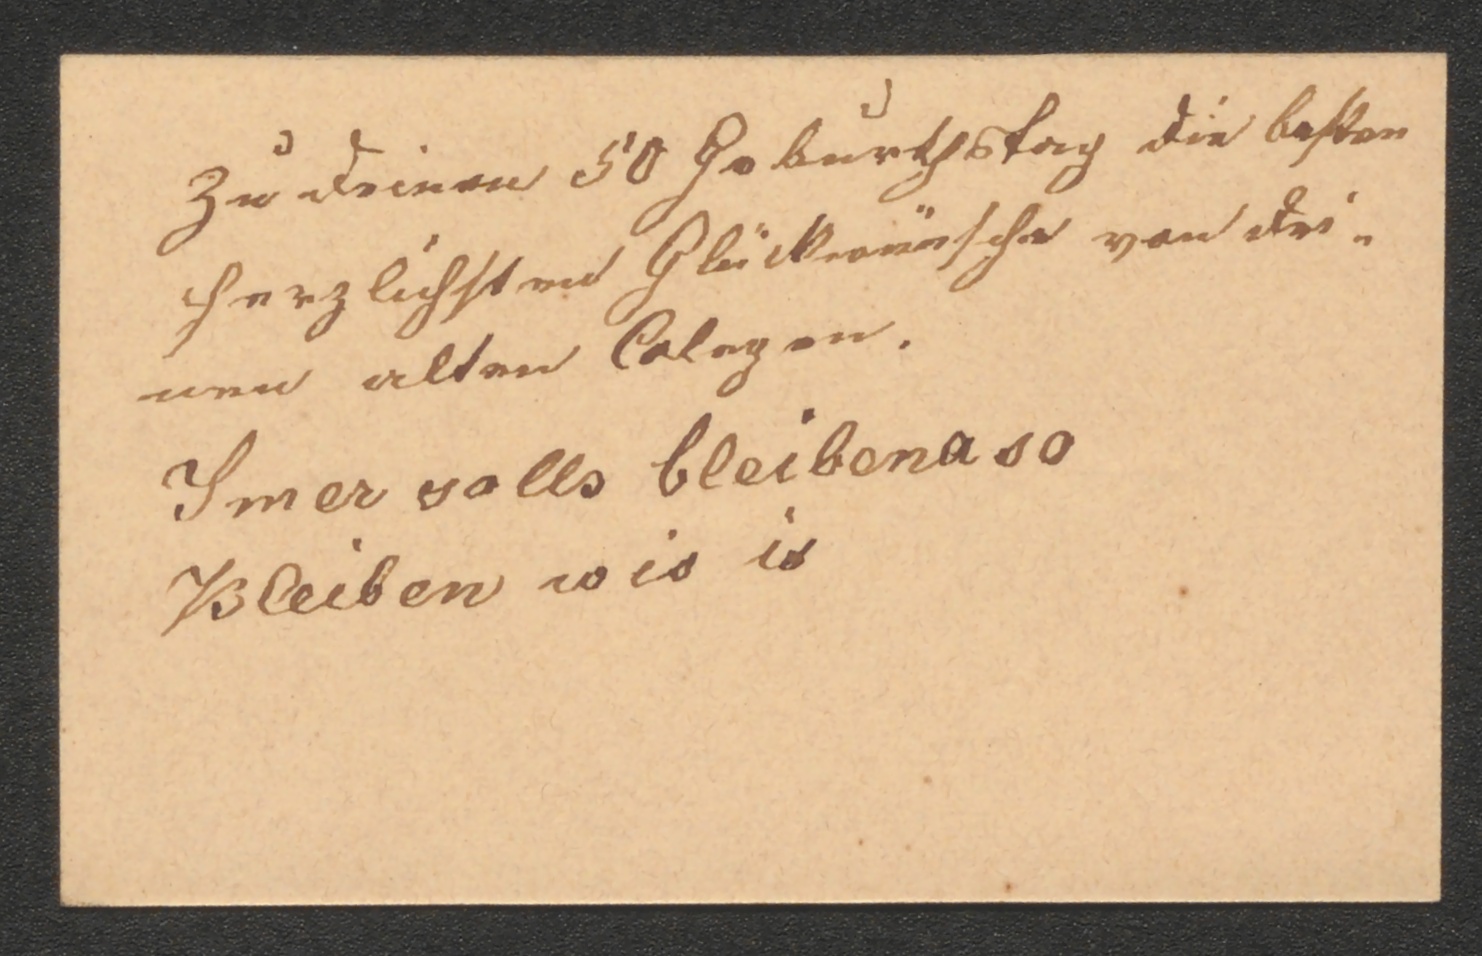 Zu deinen 50 Geburthstag die besten
herzlichsten Glückwünsche von dei-
nen alten Colegen.
Imer solls bleibena so
Bleiben wis is